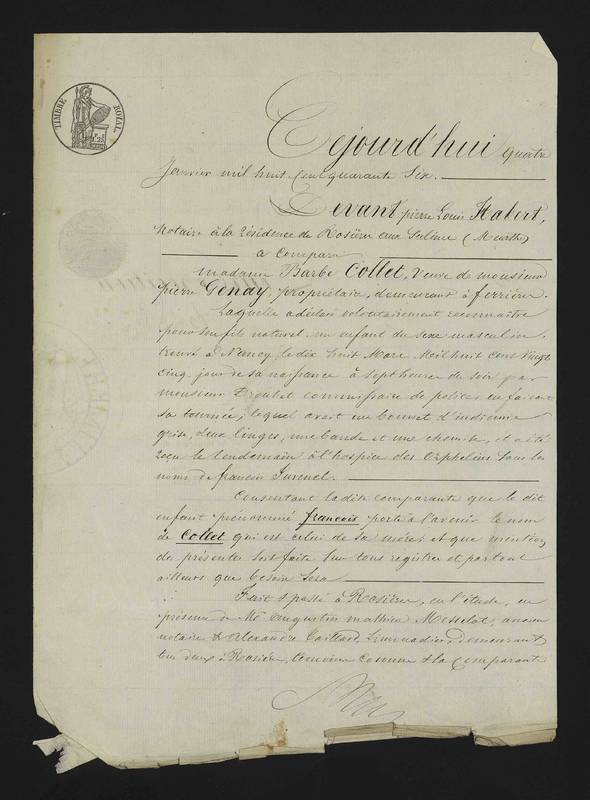 TIMBRE ROYAL
Cejourd'hui quatre
Janvier mil huit Cent quarante Six.
Devant pierre Louis Habert,
Notaire à la résidence de Rosière aux Salines (Meurthe)
a Comparu
madame Barbe Collet, veuve de monsieur
pierre Genay, propriétaire, demeurant à ferrières.
Laquelle a déclaré volontairement reconnaître
pour son fils naturel un enfant du sexe masculin
trouvé à Nancy, le dix huit Mars Mil huit cent vingt
cinq, jour de sa naissance à sept heures du soir par
monsieur Drouhet commissaire de police en faisant
sa tournée, lequel avait un bonnet d'indienne
grise, deux linges, une bande et une chemise, et a été
reçu le lendemain à l'hospice des Orphelins sous les
noms de francois Juvenel.
Consentant la dite comparante que le dit
enfant prénommé francois porte à l'avenir le nom
de Collet qui est celui de sa mère; et que mention
des présentes soit faite sur tous registres et partout
ailleurs que besoin Sera
Fait & passé à Rosières, en l'étude, en
présence de Me augustin mathieu Messelot, ancien
notaire & Alexandre Gaillard, Limonadier, demeurant
tous deux à Rosières, témoins connus & la Comparante